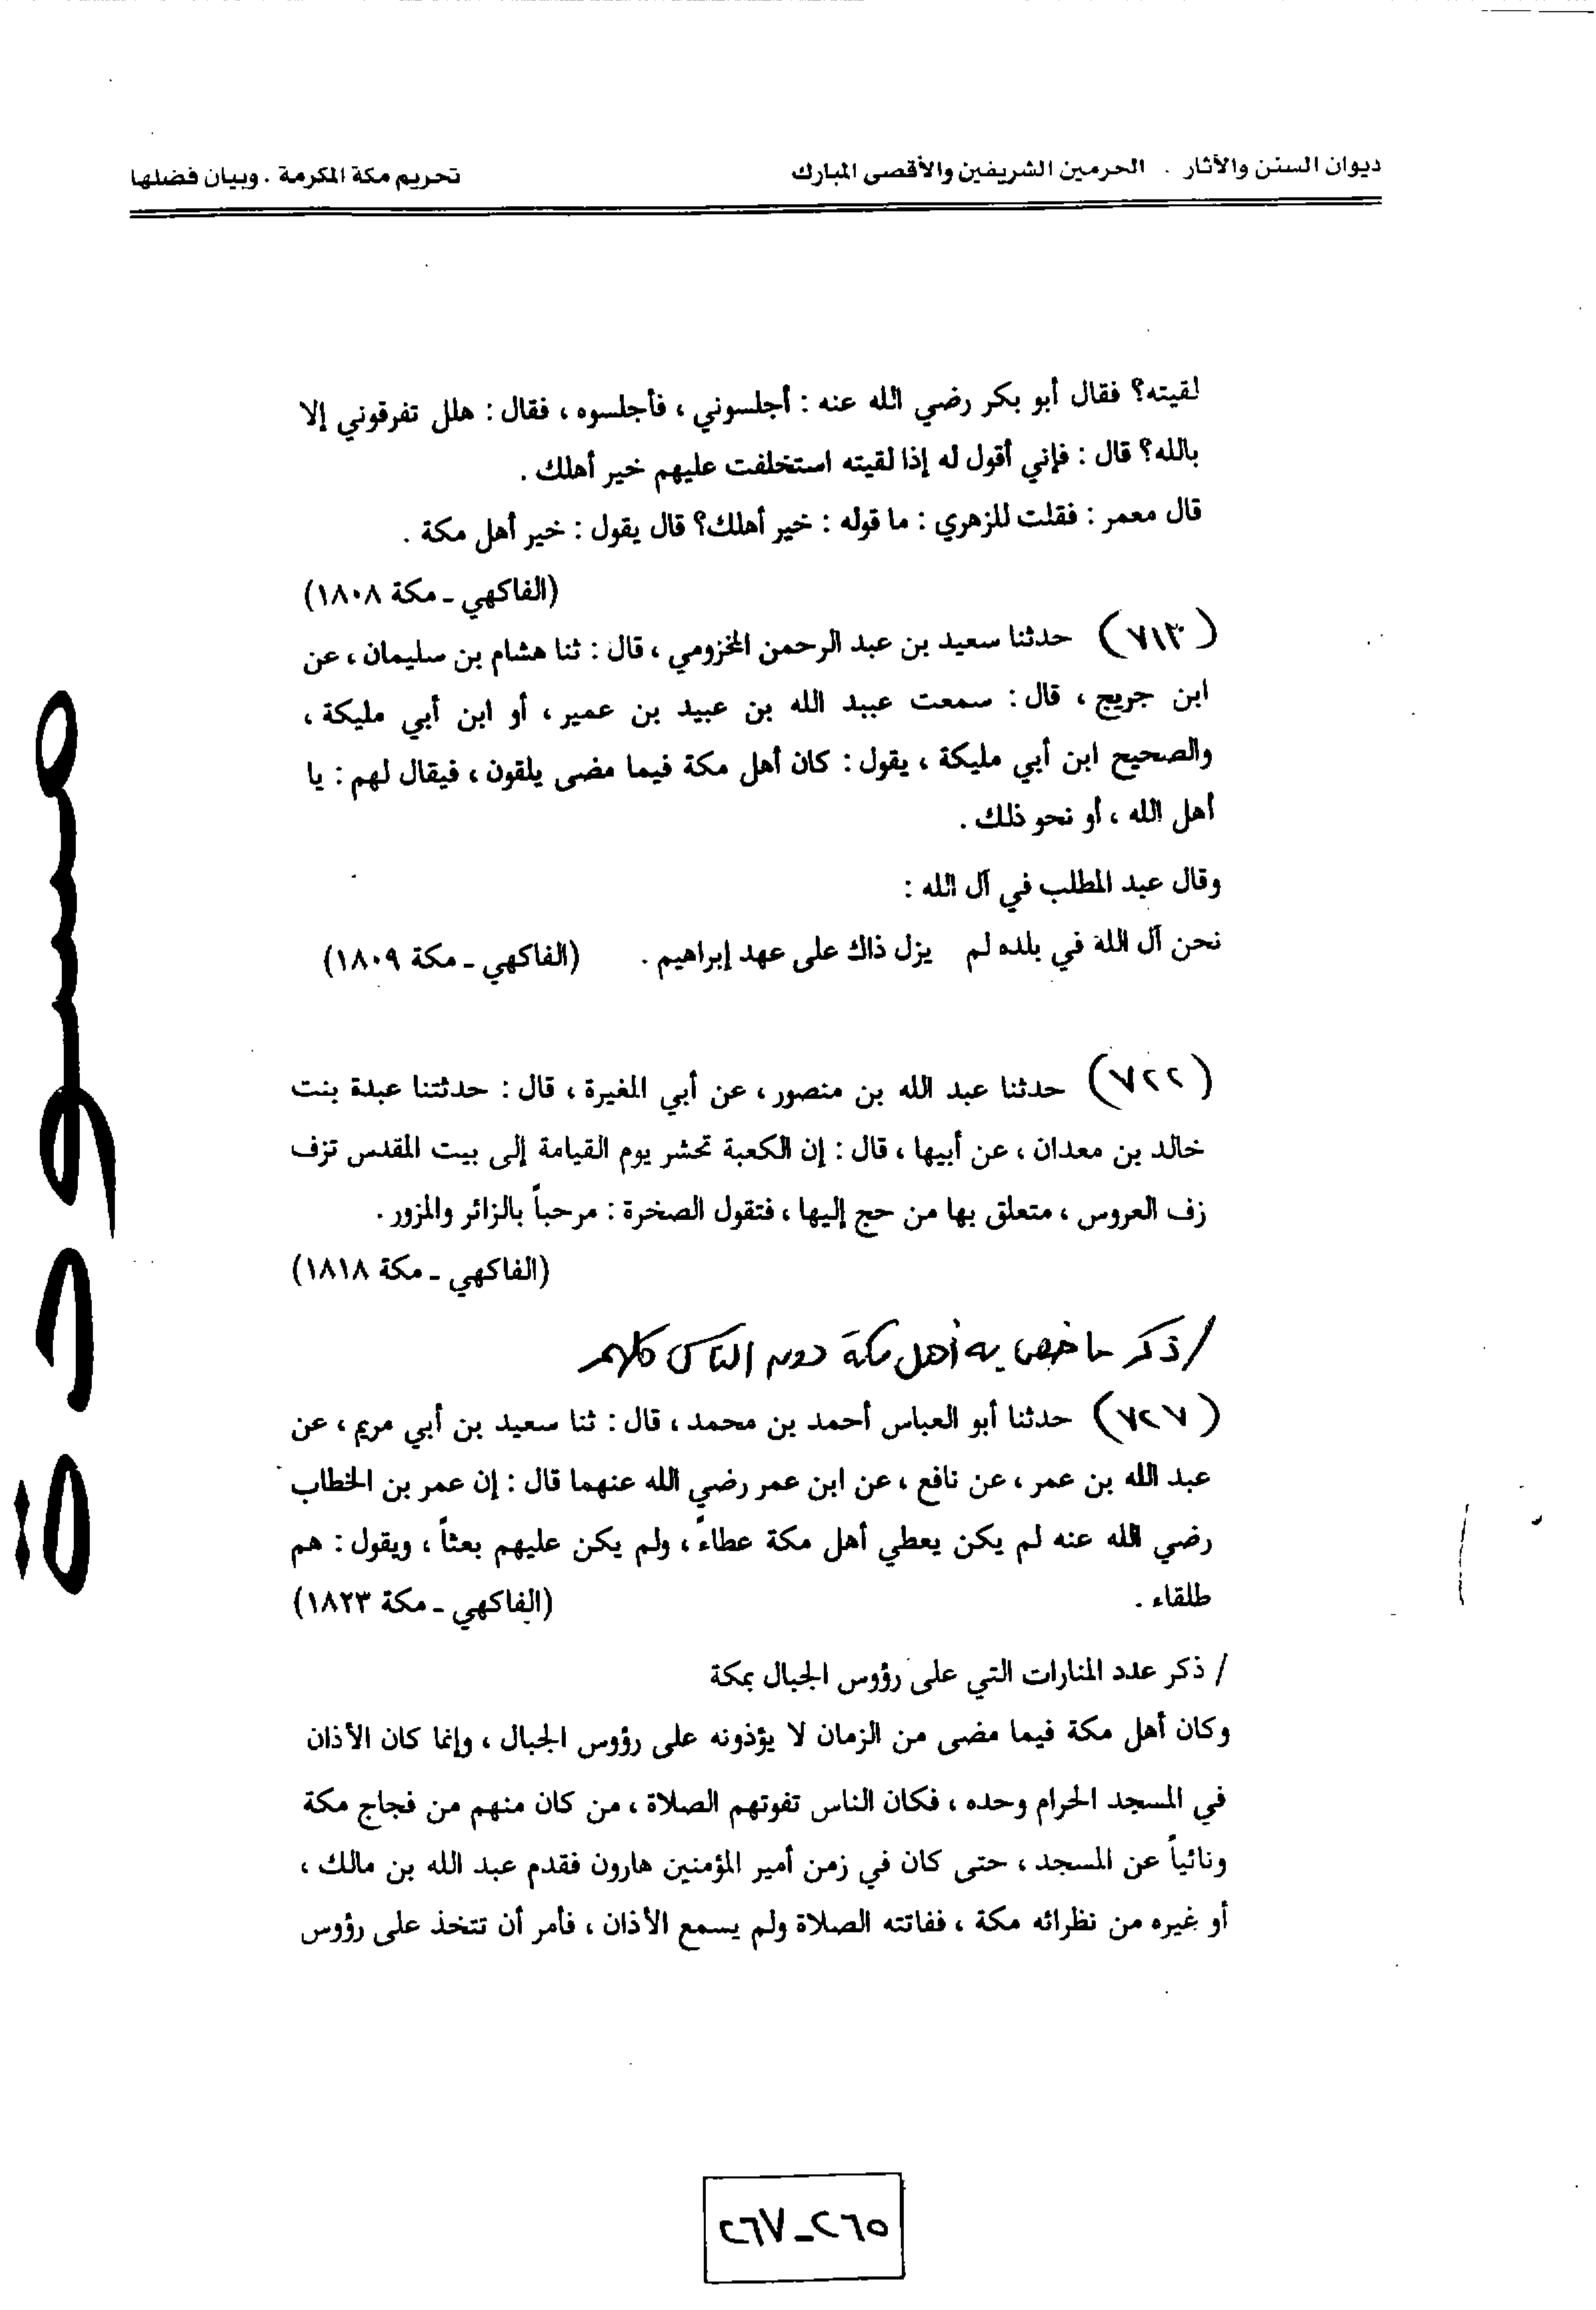 ديوان السنن والآثار . الحرمين الشريفين والأقصى المبارك
تحريم مكة المكرمة . وبيان فضلها
لقيته؟ فقال أبو بكر رضي الله عنه : أجلسوني ، فأجلسوه ، فقال : هلل تفرقوني إلا
بالله؟ قال : فإني أقول له إذا لقيته استخلفت عليهم خير أهلك .
قال معمر : فقلت للزهري : ما قوله : خير أهلك؟ قال يقول : خير أهل مكة .
(الفاكهي ـ مكة ١٨٠٨)
(٧١٣) حدثنا سعيد بن عبد الرحمن المخزومي ، قال : ثنا هشام بن سليمان ، عن
ابن جريج ، قال : سمعت عبيد الله بن عبيد بن عمير ، أو ابن أبي مليكة ،
والصحيح ابن أبي مليكة ، يقول : كان أهل مكة فيما مضى يلقون ، فيقال لهم : يا
أهل الله ، أو نحو ذلك .
وقال عبد المطلب في آل الله :
نحن آل الله في بلده لم يزل ذاك على عهد إبراهيم . (الفاكهي ـ مكة ١٨٠٩)
(٧٢٢) حدثنا عبد الله بن منصور ، عن أبي المغيرة ، قال : حدثتنا عبدة بنت
خالد بن معدان ، عن أبيها ، قال : إن الكعبة تحشر يوم القيامة إلى بيت المقدس تزف
زف العروس ، متعلق بها من حج إليها ، فتقول الصخرة : مرحباً بالزائر والمزور .
(الفاكهي ـ مكة ١٨١٨)
/ ذكر ما خص به أهل مكة دون الناس كلهم
(٧٢٧) حدثنا أبو العباس أحمد بن محمد ، قال : ثنا سعيد بن أبي مريم ، عن
عبد الله بن عمر ، عن نافع ، عن ابن عمر رضي الله عنهما قال : إن عمر بن الخطاب
رضي الله عنه لم يكن يعطي أهل مكة عطاءً ، ولم يكن عليهم بعثاً ، ويقول : هم
طلقاء . (الفاكهي ـ مكة ١٨٢٣)
/ ذكر عدد المنارات التي على رؤوس الجبال بمكة
وكان أهل مكة فيما مضى من الزمان لا يؤذونه على رؤوس الجبال ، وإنما كان الأذان
في المسجد الحرام وحده ، فكان الناس تفوتهم الصلاة ، من كان منهم من فجاج مكة
ونائياً عن المسجد ، حتى كان في زمن أمير المؤمنين هارون فقدم عبد الله بن مالك ،
أو غيره من نظرائه مكة ، ففاتته الصلاة ولم يسمع الأذان ، فأمر أن تتخذ على رؤوس
٢٦٥ـ٢٦٧
مسودة